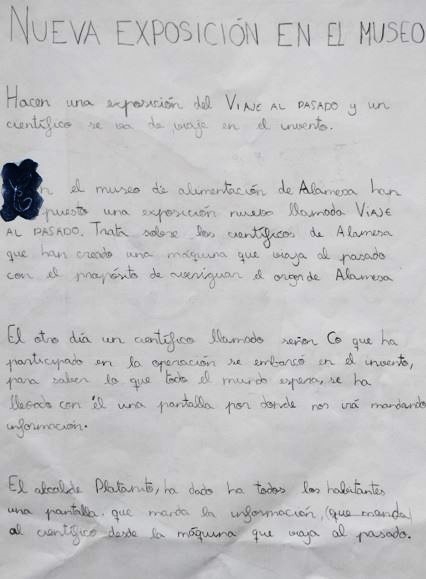 NUEVA EXPOSICIÓN EN EL MUSEO
Hacen una exposición del VIAJE AL PASADO y un
científico se va de viaje en el invento.
En el museo de alimentación de Alamesa han
puesto una exposición nueva llamada VIAJE
AL PASADO. Trata sobre los científicos de Alamesa
que han creado una máquina que viaja al pasado
con el propósito de averiguar el origen de Alamesa
El otro día un científico llamado señor Co que ha
participado en la operación se embarcó en el invento,
para saber lo que todo el mundo espera, se ha
llevado con él una pantalla por donde nos irá mandando
información.
El alcalde Platanito, ha dado ha todos los habitantes
una pantalla que manda la información, (que manda)
al científico desde la máquina que viaja al pasado.